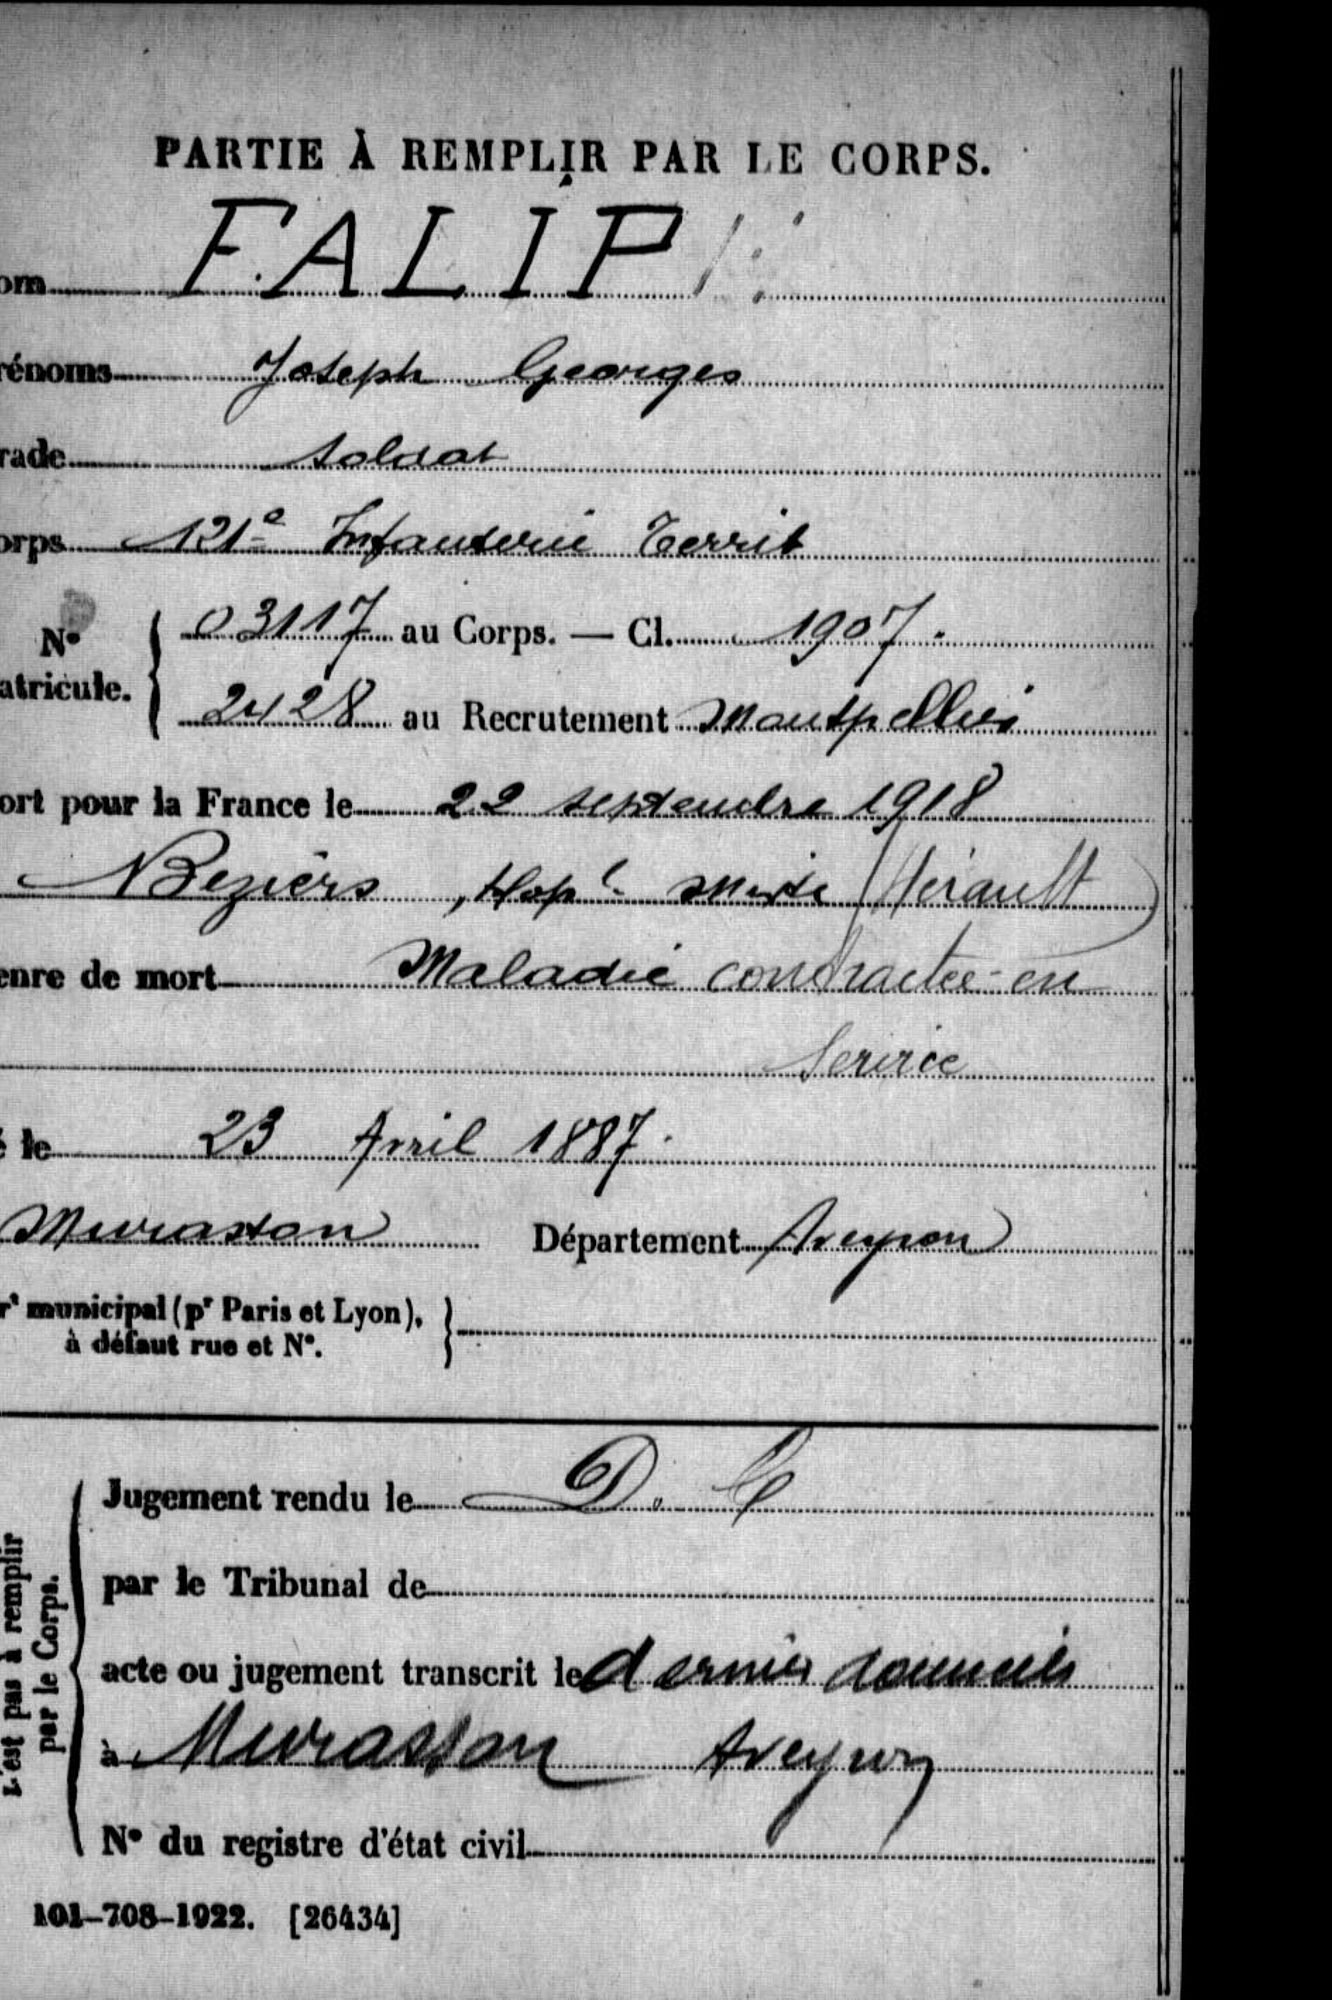 PARTIE À REMPLIR PAR LE CORPS.
om FALIP
rénoms Joseph Georges
rade Soldat
orps 121e Infanterie Territ
N° atricule. 03117 au Corps. — Cl. 1907.
2428 au Recrutement Montpellier
ort pour la France le 22 septembre 1918
Beziérs, Hopl Mixte (Hérault)
enre de mort Maladie contractée en
Service
é le 23 Avril 1887.
Murasson Département Aveyron
rt municipal (pr Paris et Lyon),
à défaut rue et N°.
L'est pas à remplir
par le Corps.
Jugement rendu le D. C
par le Tribunal de
acte ou jugement transcrit le dernier domicile
à Murasson Aveyron
N° du registre d'état civil
101-708-1922. [26434]